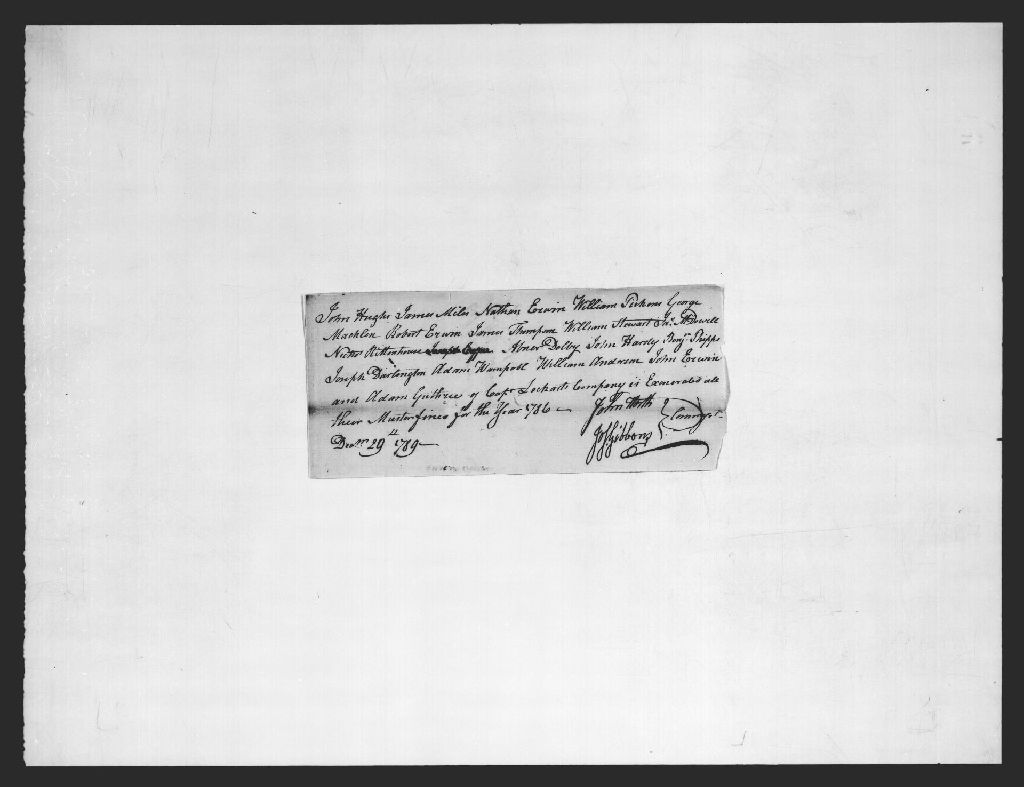 John Hughs James Miles Nathan Erwin William Perkens George
Machlen Robert Erwin James Thompson William Stewart Ja.s McDowell
Nichos Rittenhouse Abner Dolby John Hardy Benj Phipps
Joseph Darlington Adam Wampool William Anderson John Erwin
and Adam Guthrie of Cap.t Lockarts Company is Exonerated all
their Muster fines for the Year 1786 —
John Worth
Jos Gibbons
Dec.r 29 1789 —